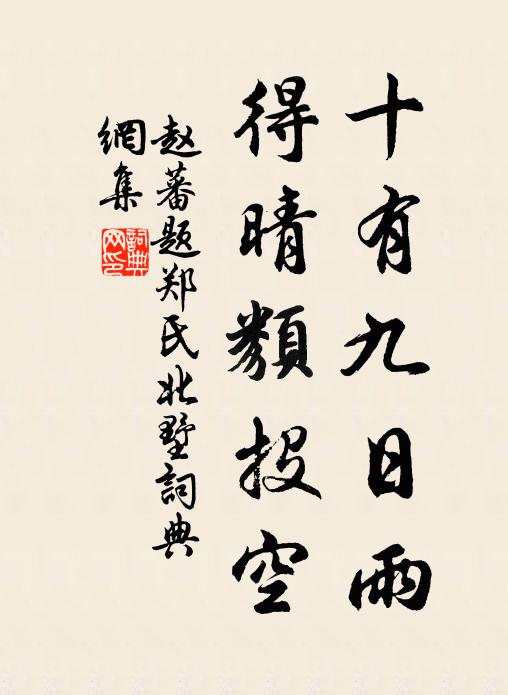 十有九日雨
得晴類投空
赵蕃题郑氏北墅詞典
網集
詞典網印